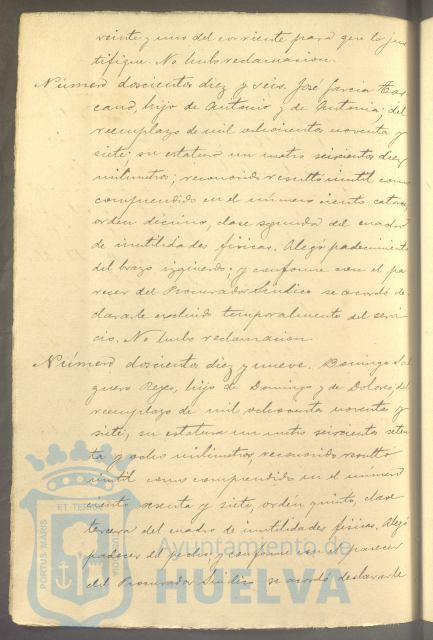 veinte y uno del corriente para que lo jus
tifique. No hubo reclamacion.
Número doscientos diez y seis. José García
cano, hijo de Antonio y de Antonia; del
reemplazo de mil ochocientos noventa y
siete; su estatura un metro seiscientos diez
milimetros; reconocido resultó inutil como
comprendido en el número ciento catorce,
orden décimo, clase segunda del cuadro
de inutilidades fisicas. Alegó padecimiento
del brazo izquierdo; y conforme con el pa
recer del Procurador Síndico se acordó de
clararle excluido temporalmente del servi
cio. No hubo reclamacion.
Número doscientos diez y nueve. Domingo
guero Reyes, hijo de Domingo y de Dolores, del
reemplazo de mil ochocientos noventa y
siete, su estatura un metro seiscientos seten
ta y ocho milimetros, reconocido resultó
inutil como comprendido en el número
ciento sesenta y siete, orden quinto, clase
tercera del cuadro de inutilidades fisicas. Alegó
padecer del pecho; y conforme con el parecer
del Procurador Síndico se acordó declararle
PORTUS MARIS
ET TERRAE
CUSTODIA
Ayuntamiento de
HUELVA